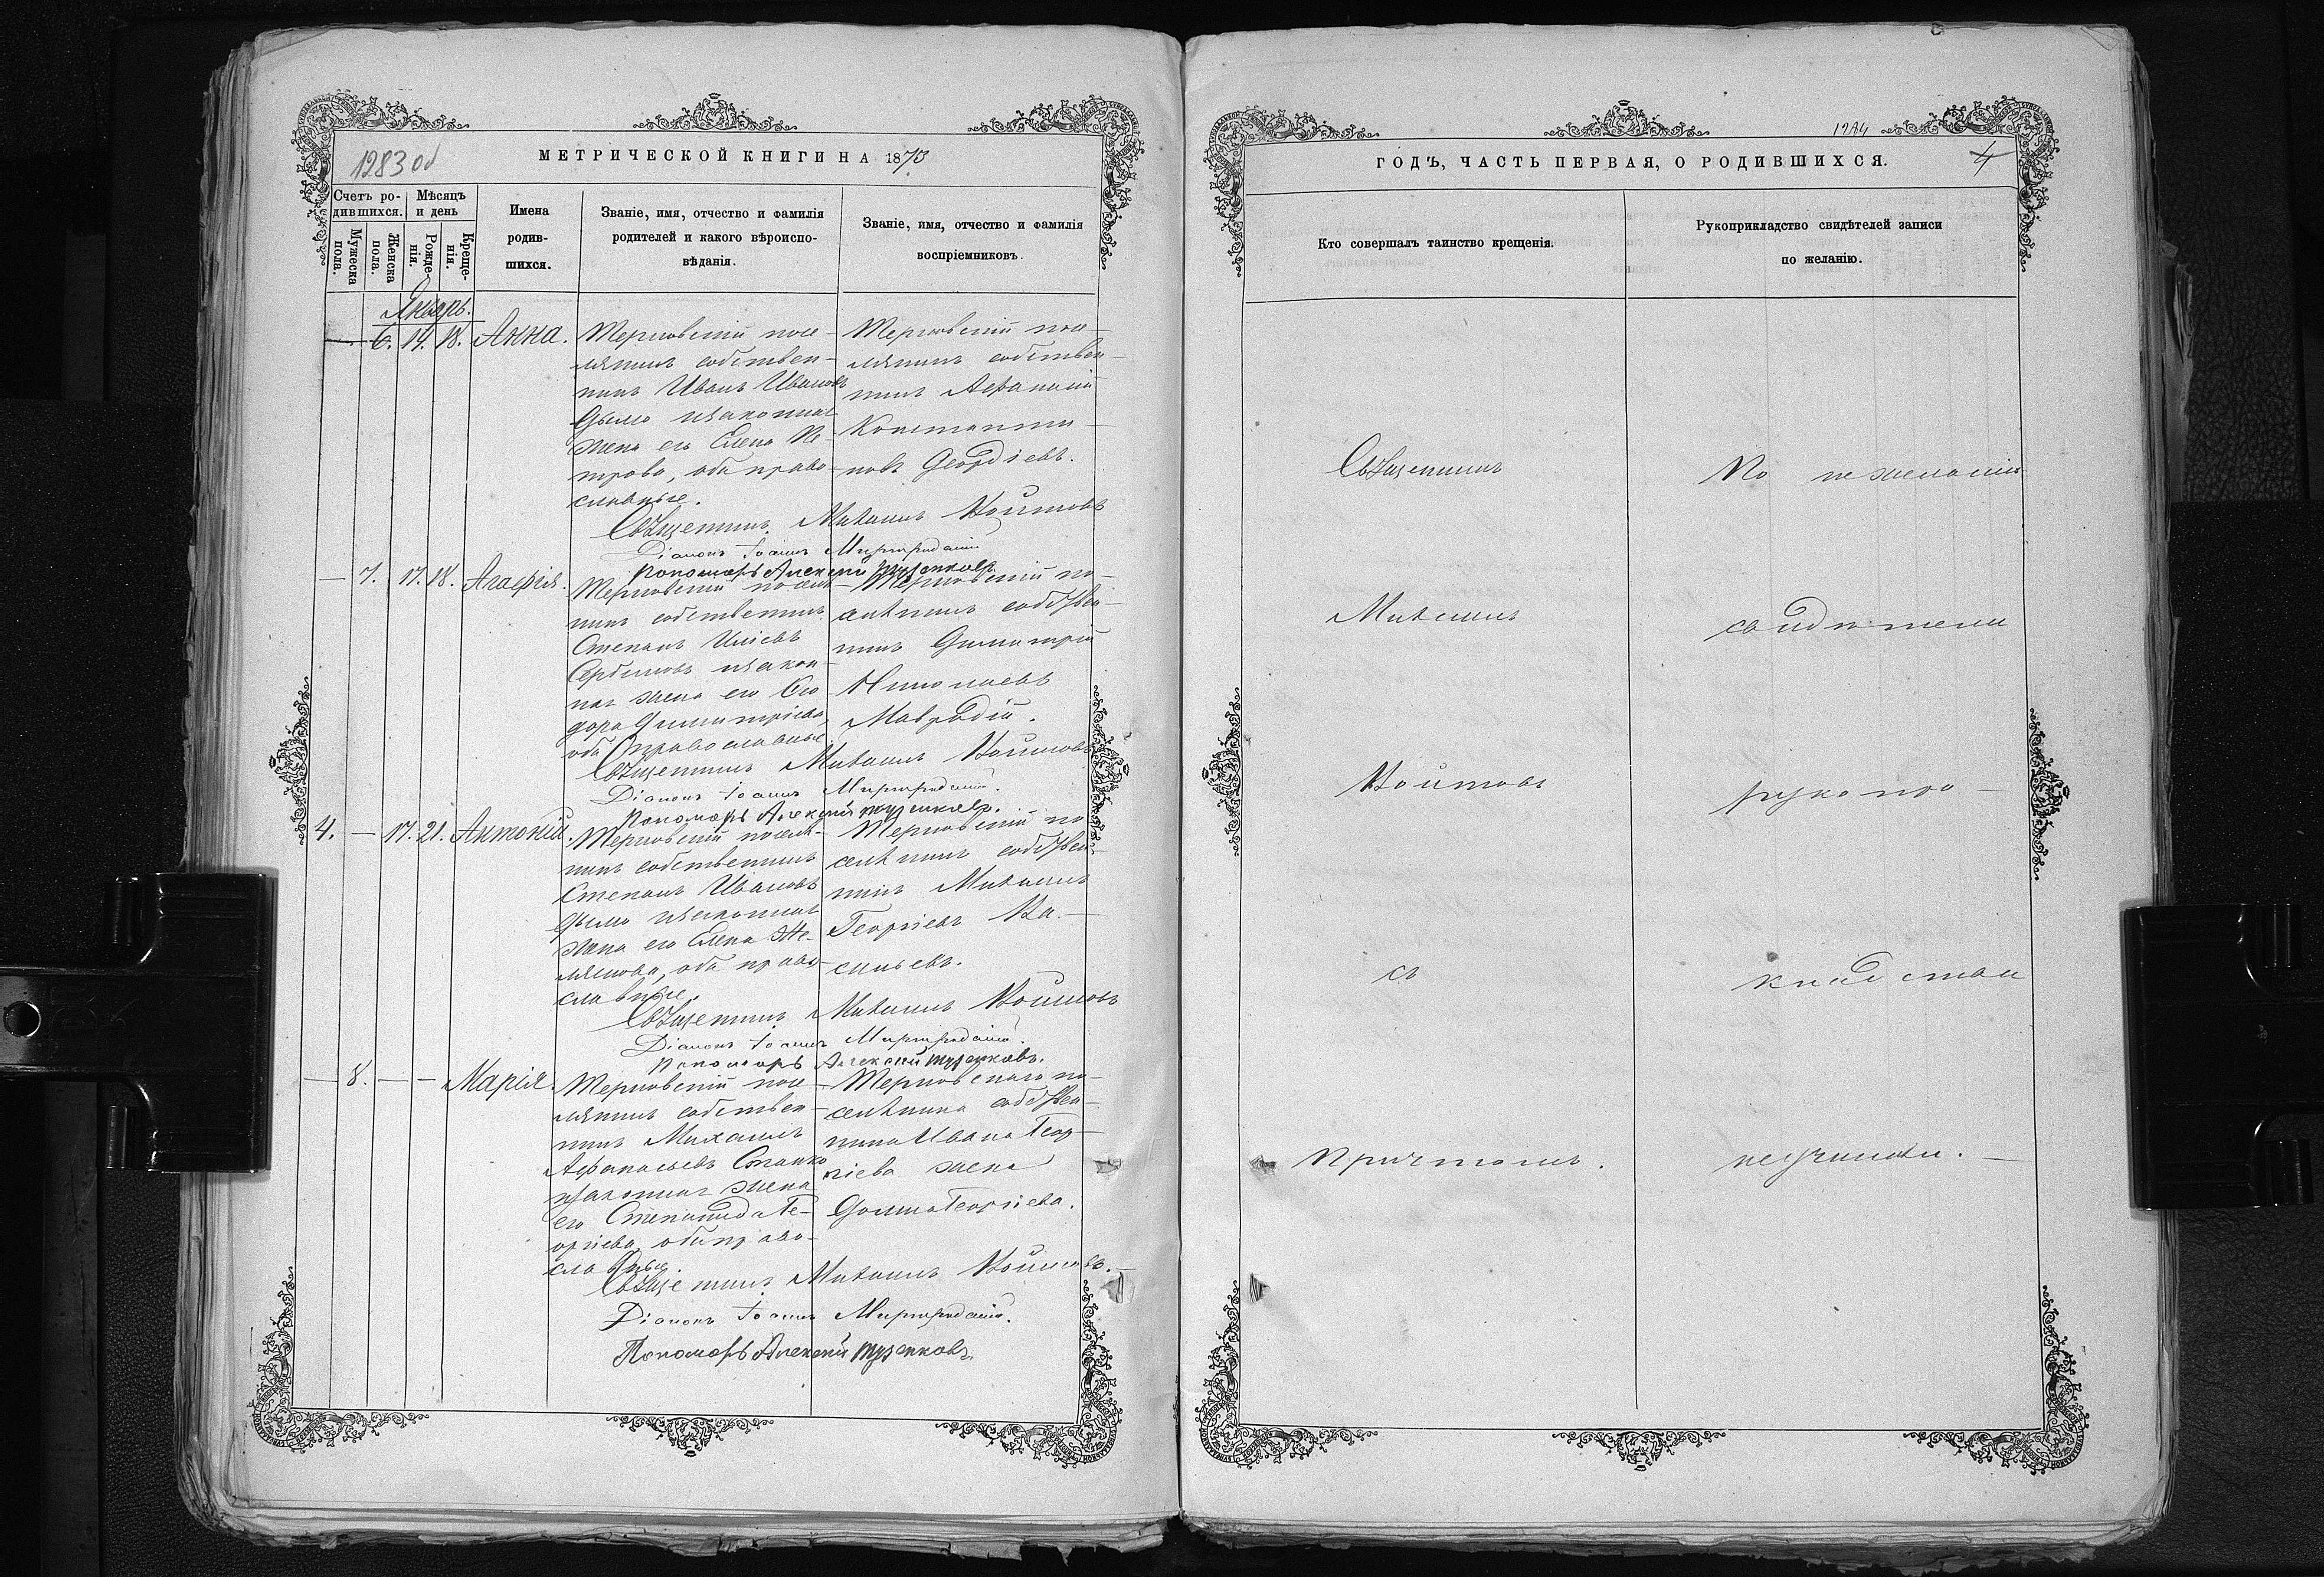 1283 об
МЕТРИЧЕСКОЙ КНИГИ НА 1873
Счетъ ро-
дившихся.
Мѣсяцъ
и день
Мужеска
пола.
Женска
пола.
Рожде-
нія.
Креще-
нія.
Имена
родив-
шихся.
Званіе, имя, отчество и фамилія
родителей и какого вѣроиспо-
вѣданія.
Званіе, имя, отчество и фамилія
воспріемниковъ.
Январь.
— 6. 14. 18. Анна.
Терновскій посе-
лянинъ собствен-
никъ Иванъ Ивановъ
Дымо и законная
жена его Елена Пе-
трова, оба право-
славные.
Терновскій посе-
лянинъ собствен-
никъ Афанасій
Константи-
новъ Георгіевъ.
Священникъ Михаилъ Войтовъ
Діаконъ Іоаннъ
Пономарь Алексей
— 7. 17. 18. Агафія.
Терновскій поселя-
нинъ собственникъ
Степанъ Иліевъ
и закон-
ная жена его Ѳео-
дора Димитріева,
оба православные
Терновскій по-
селянинъ собствен-
никъ Димитрій
Николаевъ
Священникъ Михаилъ Войтовъ
Діаконъ Іоаннъ
Пономарь Алексей
4. — 17. 21. Антоній.
Терновскій поселя-
нинъ собственникъ
Степанъ Ивановъ
Дымо и законная
жена его Елена
оба право-
славные.
Терновскій по-
селянинъ собствен-
никъ Михаилъ
Георгіевъ Ва-
сильевъ.
Священникъ Михаилъ Войтовъ
Діаконъ Іоаннъ
Пономарь Алексей
— 8. — — Марія.
Терновскій посе-
лянинъ собствен-
никъ Михаилъ
Афанасьевъ Станко
и законная жена
его Степанида Ге-
оргіева, оба право-
славные.
Терновскаго по-
селянина собствен-
ника Ивана Геор-
гіева жена
Домна Георгіева.
Священникъ Михаилъ Войтовъ.
Діаконъ Іоаннъ
Пономарь Алексей
1284
ГОДЪ, ЧАСТЬ ПЕРВАЯ, О РОДИВШИХСЯ.
4
Кто совершалъ таинство крещенія.
Рукоприкладство свидѣтелей записи
по желанію.
Священникъ
Михаилъ
Войтовъ
съ
Причтомъ.
По не желанію
свидѣтели
рукопри-
кладства
не учинили.